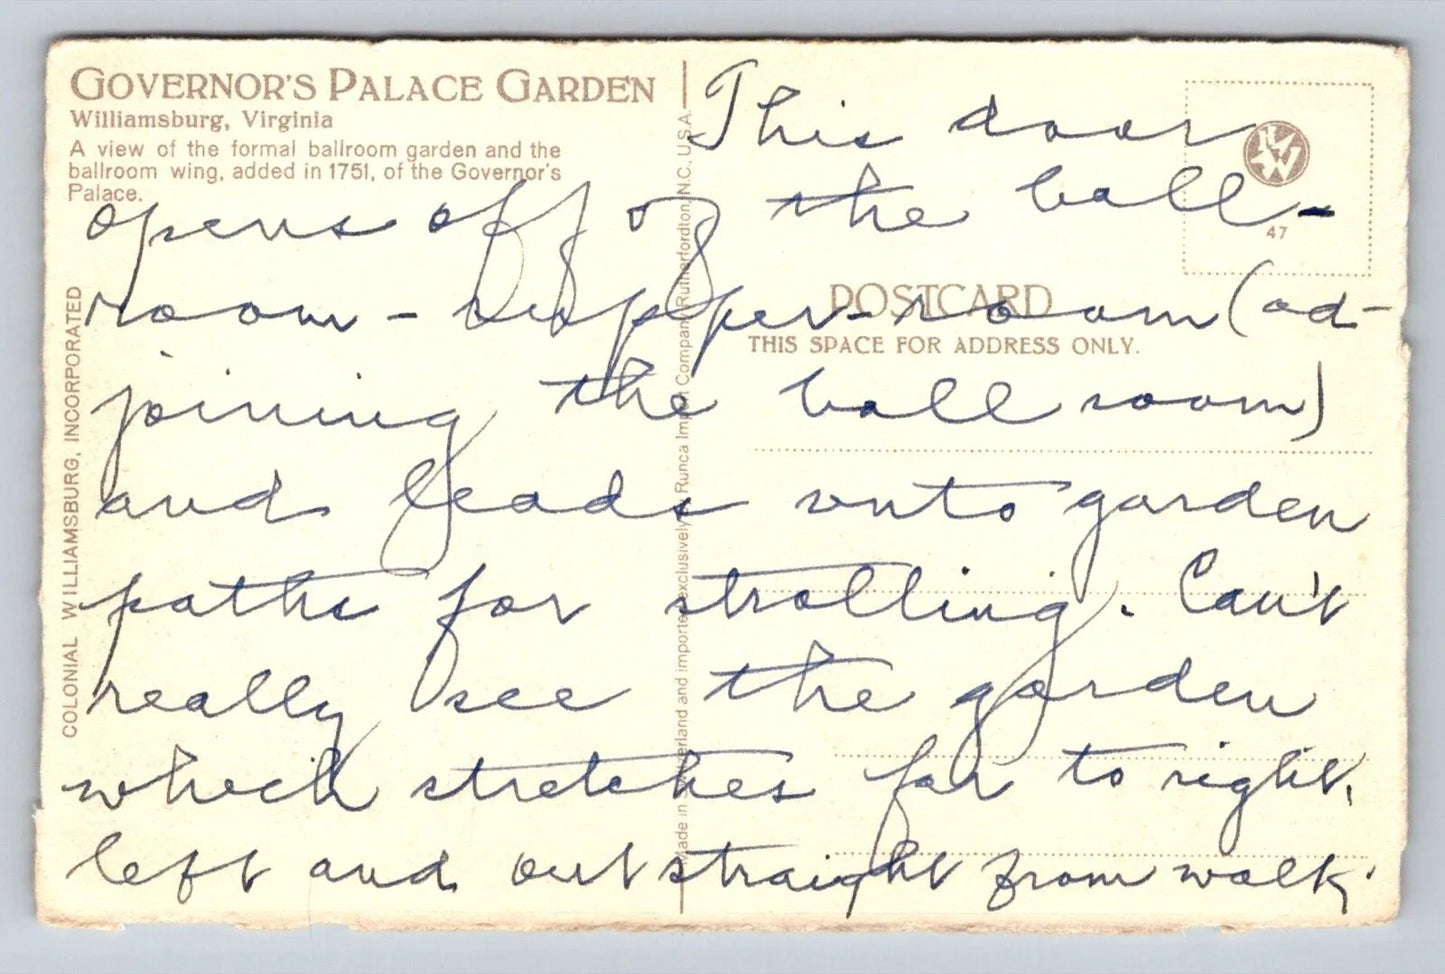 GOVERNOR'S PALACE GARDEN
Williamsburg, Virginia
A view of the formal ballroom garden and the
ballroom wing, added in 1751, of the Governor's
Palace.
COLONIAL WILLIAMSBURG, INCORPORATED
Made in erland and importe exclusively Runca Imp Compan Rutherfordton, N.C. U.S.A.
47
POSTCARD
THIS SPACE FOR ADDRESS ONLY.
This door
opens off of the ball-
room - supper-room (ad-
joining the ball room)
and leads onto garden
paths for strolling. Can't
really see the garden
which stretches far to right,
left and out straight from walk.